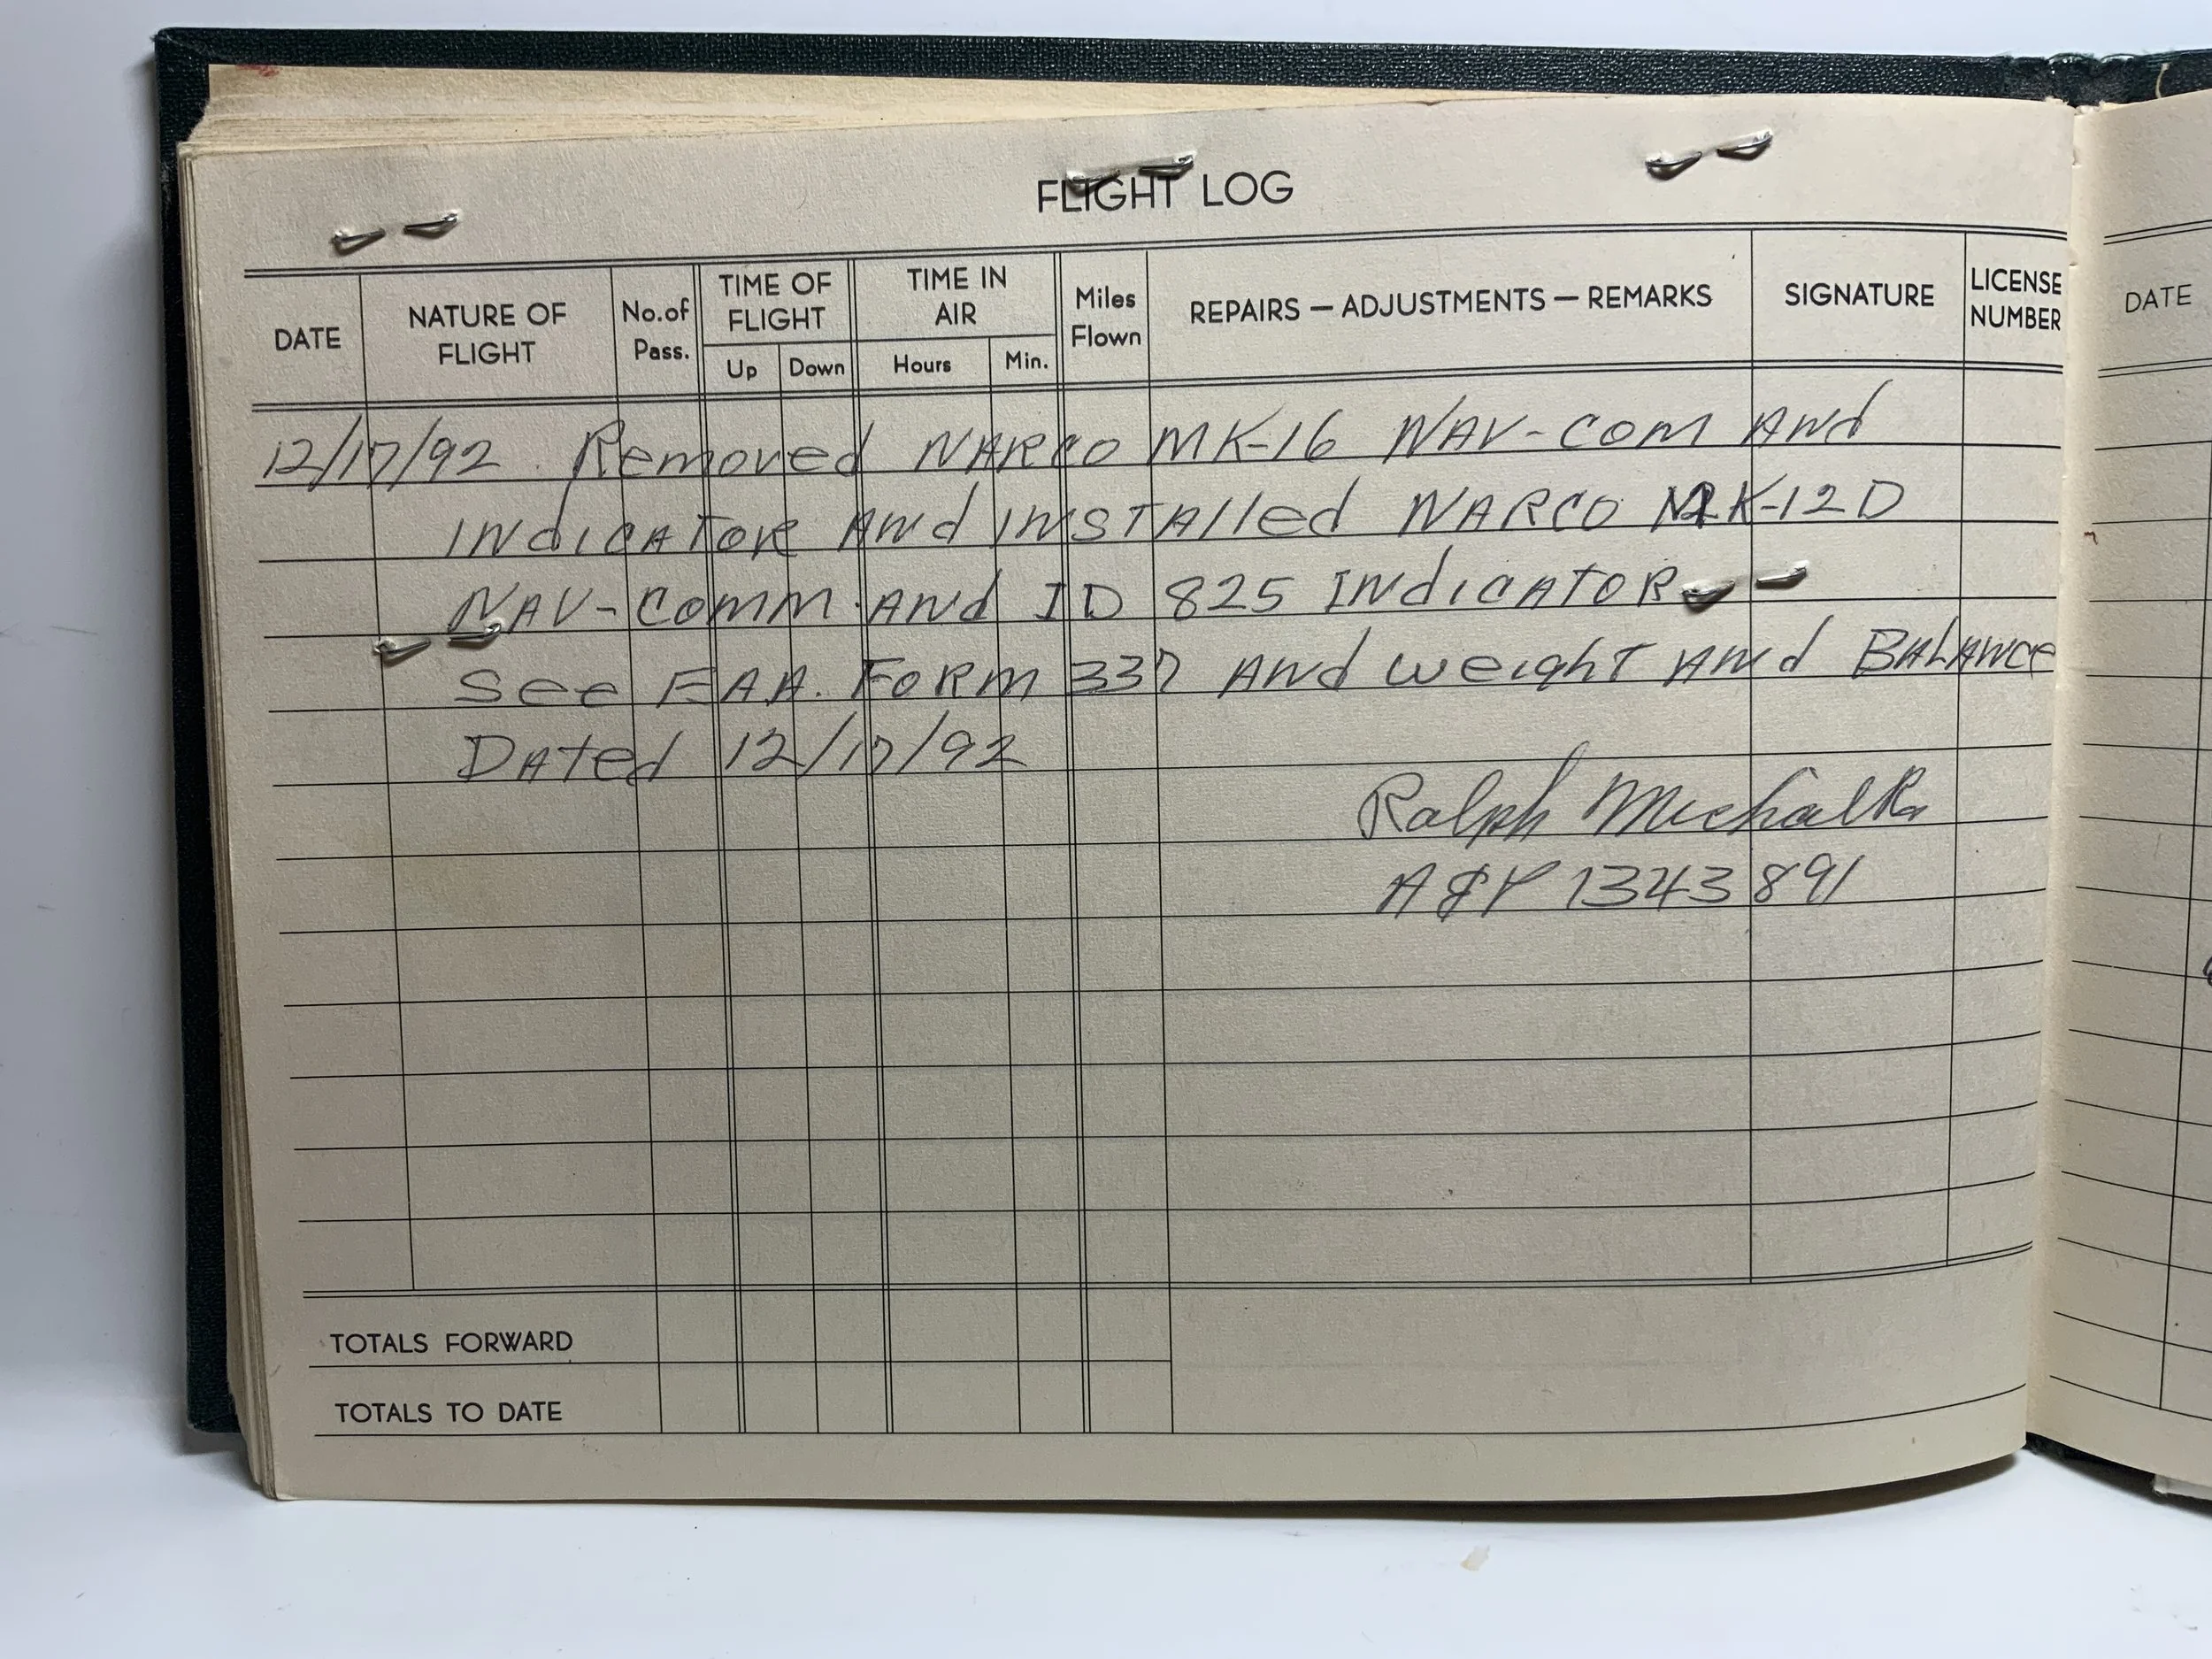 FLIGHT LOG
DATE NATURE OF FLIGHT No. of Pass. TIME OF FLIGHT Up Down TIME IN AIR Hours Min. Miles Flown REPAIRS — ADJUSTMENTS — REMARKS SIGNATURE LICENSE NUMBER
12/17/92 Removed NARCO MK-16 NAV-COM ANd
INdICATOR ANd INSTAlled NARCO MK-12D
NAV-COMM ANd ID 825 INdICATOR
See FAA. FORM 337 ANd weighT ANd BALANCE
DATed 12/17/92
Ralph Michalk
A&P 1343891
TOTALS FORWARD
TOTALS TO DATE
DATE